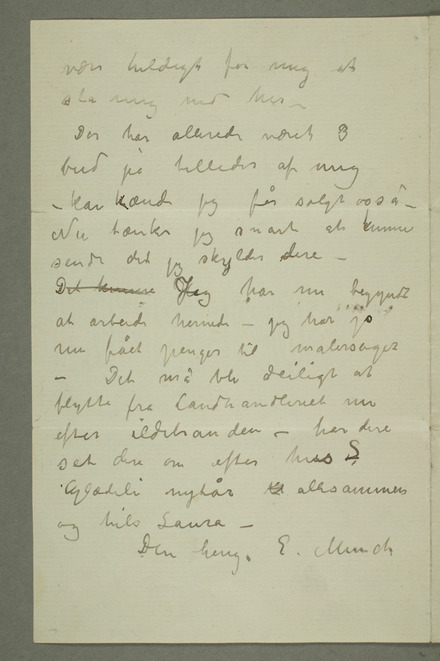 være heldigt for mig at
slå mig ned her –
Der har allerede været 3
bud på billedet af mig
– kan hænde jeg får solgt også –
Nu tænker jeg snart at kunne
sende det jeg skylder dere –
Det kunne Jeg har nu begyndt
at arbeide hernede – jeg har jo
nu fået penger til malersager
– Det må bli deiligt at
flytte fra Landhandleriet nu
efter ildebranden – har dere
set dere om efter hus
Glædeli nytår allesammen
og hils Laura –
Din heng. E. Munch